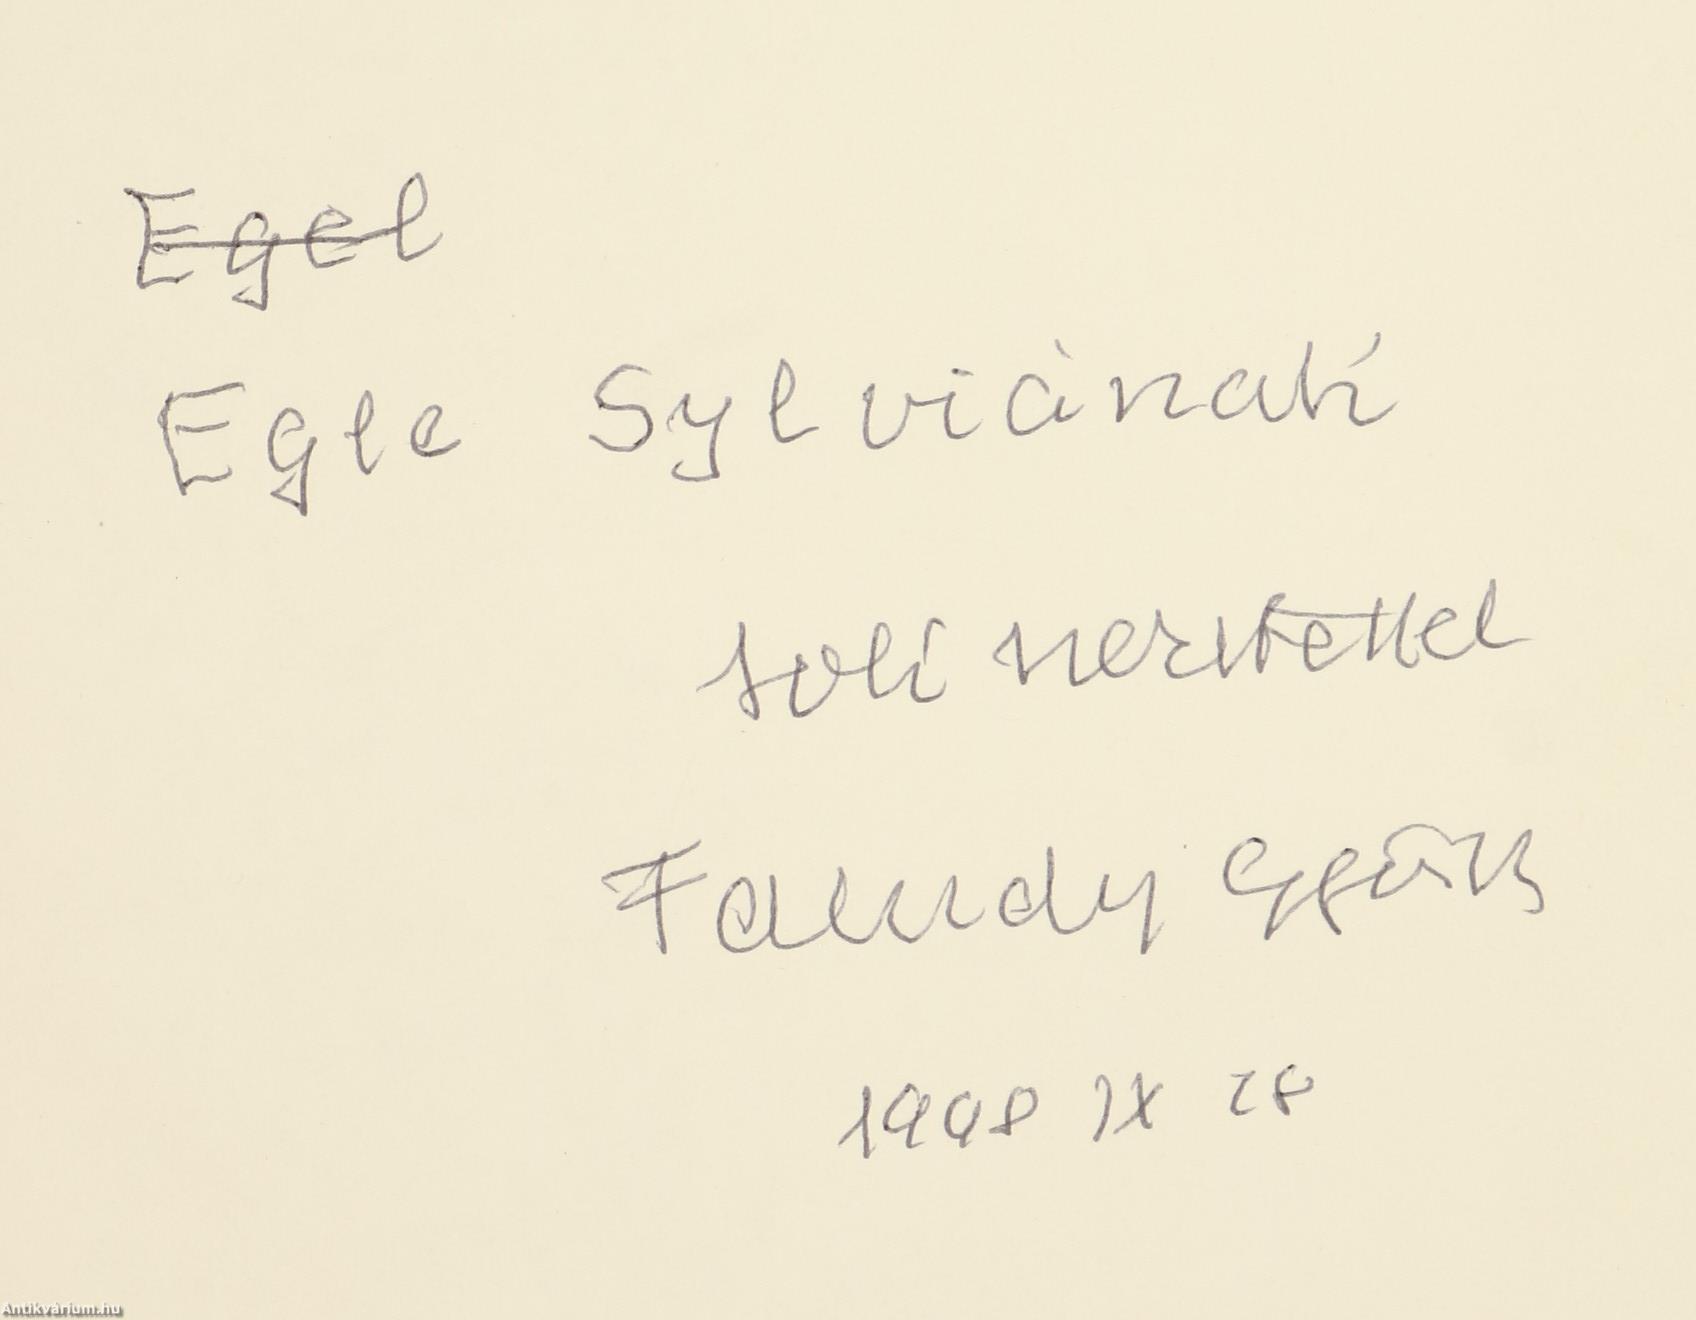 Egel
Egle Sylviának
sok szeretettel
Faludy György
1998 IX 28
Antikvárium.hu